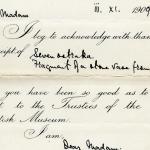 iii. XI. 1909
Madam
I beg to acknowledge with than
ceipt of Seven ostraka
Fragment of a stone vase from
you have been so good as to
t to the Trustees of the
tish Museum.
I am,
Dear Madam